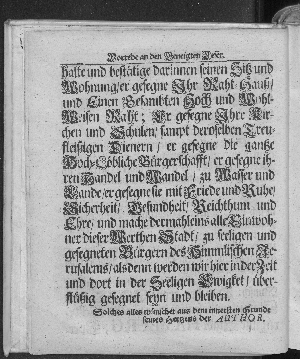 Vorrede an den Geneigten Leser.
halte und bestätige darinnen seinen Sitz und
Wohnung/ er gesegne Ihr Raht-Hauß/
und Einen Gesambten Hoch und Wohl-
Weisen Raht; Er gesegne Ihre Kir-
chen und Schulen/ sampt deroselben Treu-
fleissigen Dienern/ er gesegne die gantze
Hoch-Löbliche Bürgerschafft/ er gesegne ih-
ren Handel und Wandel/ zu Wasser und
Lande/ er gesegne sie mit Friede und Ruhe/
Sicherheit/ Gesundheit/ Reichthum und
Ehre/ und mache dermahleins alle Einwoh-
ner dieser Werthen Stadt/ zu seeligen und
gesegneten Bürgern des Himmlischen Je-
rusalems/ als denn werden wir hier in der Zeit
und dort in der Seeligen Ewigket/ über-
flüßig gesegnet seyn und bleiben.
Solches alles wünschet aus dem innersten Grunde
seines Hertzens der AUTHOR.